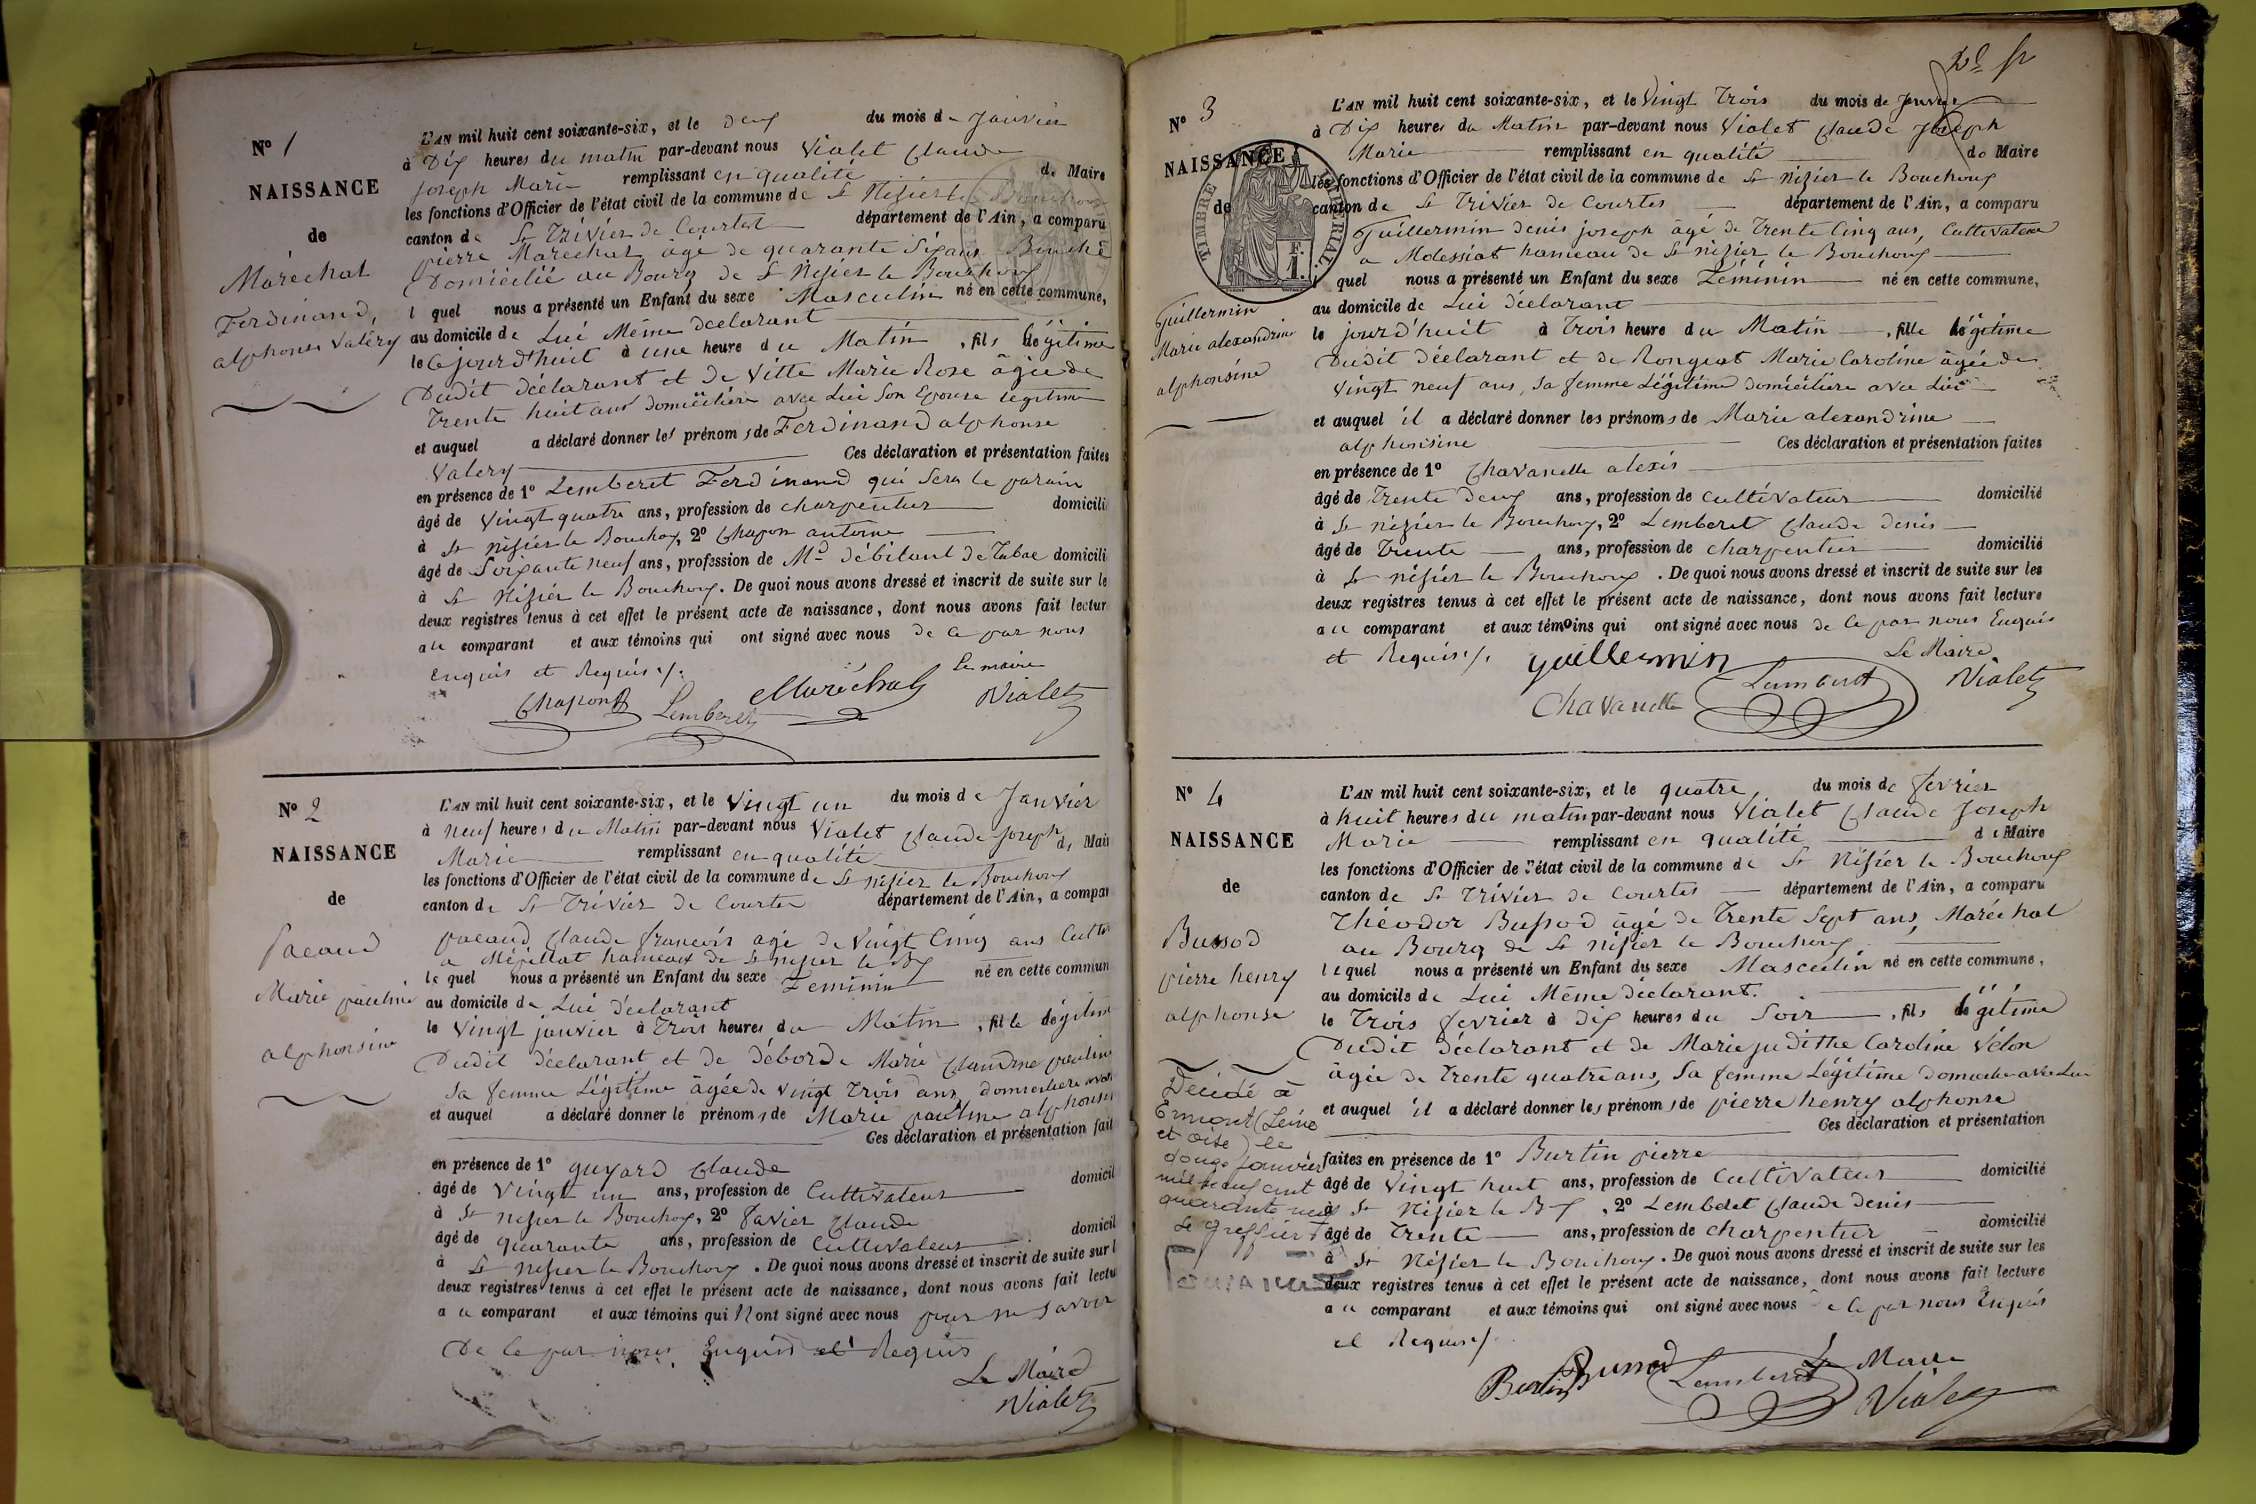 N° 1
NAISSANCE
de
Maréchal
Ferdinand,
alphonse Valéry
L'AN mil huit cent soixante-six, et le deux du mois de Janvier
à Dix heures du matin par-devant nous Vialet Claude
Joseph Marie remplissant en qualité de Maire
les fonctions d'Officier de l'état civil de la commune de St Nizier le Bouchoux
canton de St Trivier de Courtes département de l'Ain, a comparu
pierre Maréchal âgé de quarante Six ans
Domicilié au Bourg de St Nizier le Bouchoux
l quel nous a présenté un Enfant du sexe Masculin né en cette commune,
au domicile de Lui Même déclarant
le Ce jourd'huit à une heure du Matin, fils légitime
Dudit déclarant et de Vitte Marie Rose âgée de
Trente huit ans domicilière avec Lui Son Epouse légitime
et auquel a déclaré donner les prénoms de Ferdinand alphonse
Valéry Ces déclaration et présentation faites
en présence de 1° Lemberet Ferdinand qui Sera le parain
âgé de vingt quatre ans, profession de charpentier domicili
à St Nizier le Bouchox, 2° Chapon antoine
âgé de Soixante neuf ans, profession de Md débitant de Tabac domicili
à St Nizier le Bouchoux. De quoi nous avons dressé et inscrit de suite sur le
deux registres tenus à cet effet le présent acte de naissance, dont nous avons fait lectur
au comparant et aux témoins qui ont signé avec nous de ce par nous
enquis et Requis ./.
Le maire
Chapon Lemberet Maréchal Vialet
N° 2
NAISSANCE
de
Pacaud
Marie pauline
alphonsine
L'AN mil huit cent soixante-six, et le Vingt un du mois de Janvier
à neuf heures du Matin par-devant nous Vialet Claude Joseph
Marie remplissant en qualité de Mair
les fonctions d'Officier de l'état civil de la commune de St nizier le Bouchoux
canton de St Trivier de Courtes département de l'Ain, a compar
pacaud Claude françois âgé de Vingt Cinq ans Cultiv
a Mézillat hameaux de St nizier le Bx
le quel nous a présenté un Enfant du sexe Feminin né en cette commun
au domicile de Lui déclarant
le Vingt janvier à Trois heures du Matin, fille légitim
Dudit déclarant et de Débord Marie Claudine pauline
Sa femme Légitime âgée de vingt Trois ans, domicilière avec
et auquel a déclaré donner le prénoms de Marie pauline alphonsi
Ces déclaration et présentation fait
en présence de 1° guyard Claude
âgé de Vingt un ans, profession de Cultivateur domicil
à St nizier le Bouchox, 2° Favier Claude
âgé de quarante ans, profession de Cultivateur domicil
à St nizier le Bouchoux. De quoi nous avons dressé et inscrit de suite sur l
deux registres tenus à cet effet le présent acte de naissance, dont nous avons fait lectu
au comparant et aux témoins qui N ont signé avec nous pour ne Savoir
De ce par nous Enquis et Requis
Le Maire
Vialet
N° 3
NAISSANCE
de
TIMBRE IMPÉRIAL
F. 1.
Guillermin
Marie alexandrine
alphonsine
L'AN mil huit cent soixante-six, et le Vingt Trois du mois de Janvier
à Dix heures du Matin par-devant nous Vialet Claude Joseph
Marie remplissant en qualité de Maire
les fonctions d'Officier de l'état civil de la commune de St nizier le Bouchoux
canton de St Trivier de Courtes département de l'Ain, a comparu
Guillermin denis joseph âgé de Trente Cinq ans, Cultivateur
a Molessiat hameau de St nizier le Bouchoux
l quel nous a présenté un Enfant du sexe Féminin né en cette commune,
au domicile de Lui déclarant
le jourd'huit à Trois heure du Matin, fille légitime
Dudit déclarant et de Rongeat Marie Caroline âgée de
Vingt neuf ans, Sa femme Légitime domicilière avec Lui
et auquel il a déclaré donner les prénoms de Marie alexandrine
alphonsine Ces déclaration et présentation faites
en présence de 1° Chavanelle alexis
âgé de Trente deux ans, profession de Cultivateur domicilié
à St nizier le Bouchoux, 2° Lemberet Claude denis
âgé de Trente ans, profession de charpentier domicilié
à St nizier le Bouchoux. De quoi nous avons dressé et inscrit de suite sur les
deux registres tenus à cet effet le présent acte de naissance, dont nous avons fait lecture
au comparant et aux témoins qui ont signé avec nous de ce par nous Enquis
et Requis ./. Guillermin Le Maire
Chavanelle Lemberet Vialet
N° 4
NAISSANCE
de
Bussod
pierre henry
alphonse
Décédé à
Ermont (Seine
et Oise) le
douze Janvier
mil neuf cent
quarante neuf
Le Greffier
L'AN mil huit cent soixante-six, et le quatre du mois de fevrier
à huit heures du matin par-devant nous Vialet Claude Joseph
Marie remplissant en qualité de Maire
les fonctions d'Officier de l'état civil de la commune de St Nizier le Bouchoux
canton de St Trivier de Courtes département de l'Ain, a comparu
Théodor Bussod âgé de Trente Sept ans, Maréchal
au Bourg de St nizier le Bouchoux
le quel nous a présenté un Enfant du sexe Masculin né en cette commune,
au domicile de Lui Même déclarant.
le Trois fevrier à Dix heures du Soir, fils légitime
Dudit déclarant et de Marie judithe Caroline Vélon
âgée de Trente quatre ans, Sa femme Légitime domicilière avec Lui
et auquel il a déclaré donner les prénoms de pierre henry alphonse
Ces déclaration et présentation
faites en présence de 1° Burtin pierre
âgé de Vingt huit ans, profession de Cultivateur domicilié
à St Nizier le Bx, 2° Lemberet Claude denis
âgé de Trente ans, profession de charpentier domicilié
à St Nizier le Bouchoux. De quoi nous avons dressé et inscrit de suite sur les
deux registres tenus à cet effet le présent acte de naissance, dont nous avons fait lecture
au comparant et aux témoins qui ont signé avec nous de ce par nous Enquis
et Requis ./.
Burtin Bussod Lemberet Le Maire
Vialet